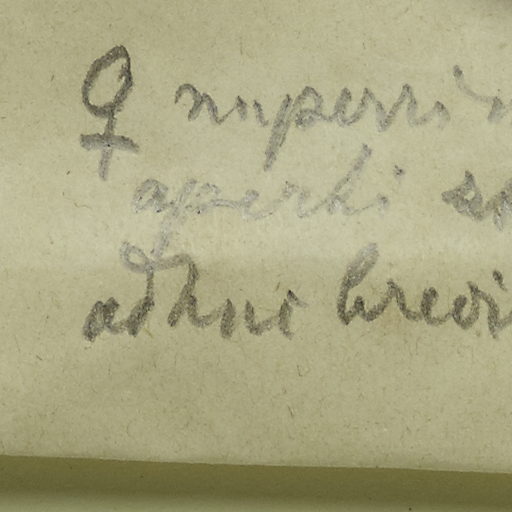 ♀ nuperri
aperti
adhuc brevi